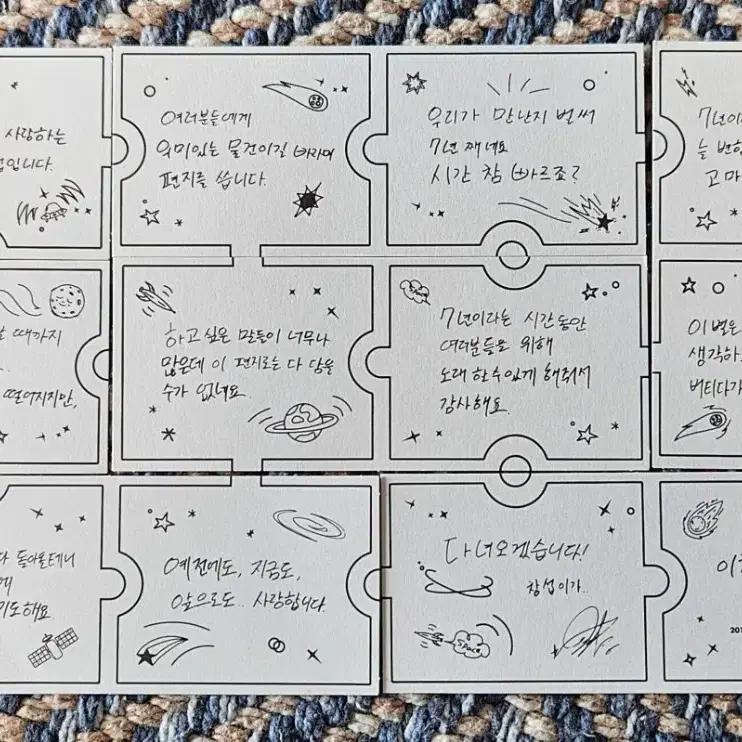 사랑하는
입니다.
여러분들에게
의미있는 물건이길 바라며
편지를 씁니다.
우리가 만난지 벌써
7년 째네요
시간 참 빠르죠?
7년이
늘 변함
고마
때까지
떨어지지만,
하고 싶은 말들이 너무나
많은데 이 편지로는 다 담을
수가 없네요.
7년이라는 시간동안
여러분들을 위해
노래 할 수 있게 해줘서
감사해요.
이별은
생각하
버티다가
돌아올테니
게
기도해요
예전에도, 지금도,
앞으로도.. 사랑합니다.
다녀오겠습니다!
창섭이가..
SPACE
201